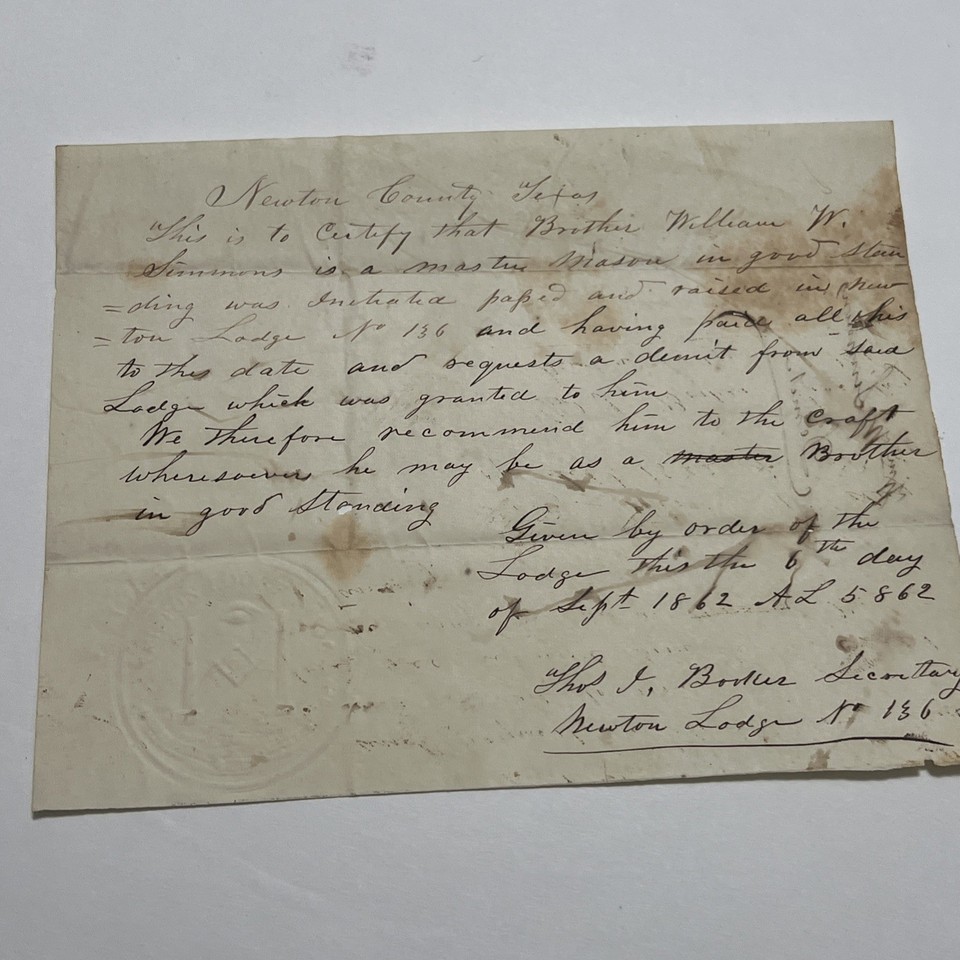 Newton County Texas
This is to Certify that Brother William W.
Simmons is a master Mason in good Stan
=ding was Initiated paßed and raised in New
=ton Lodge No 136 and having paid all this
to this date and requests a demit from said
Lodge which was granted to him
We therefore recommend him to the craft
wheresoever he may be as a master Brother
in good Standing
Given by order of the
Lodge this the 6th day
of Sept 1862 AL 5862
Thos I, Booker Secretary
Newton Lodge No 136